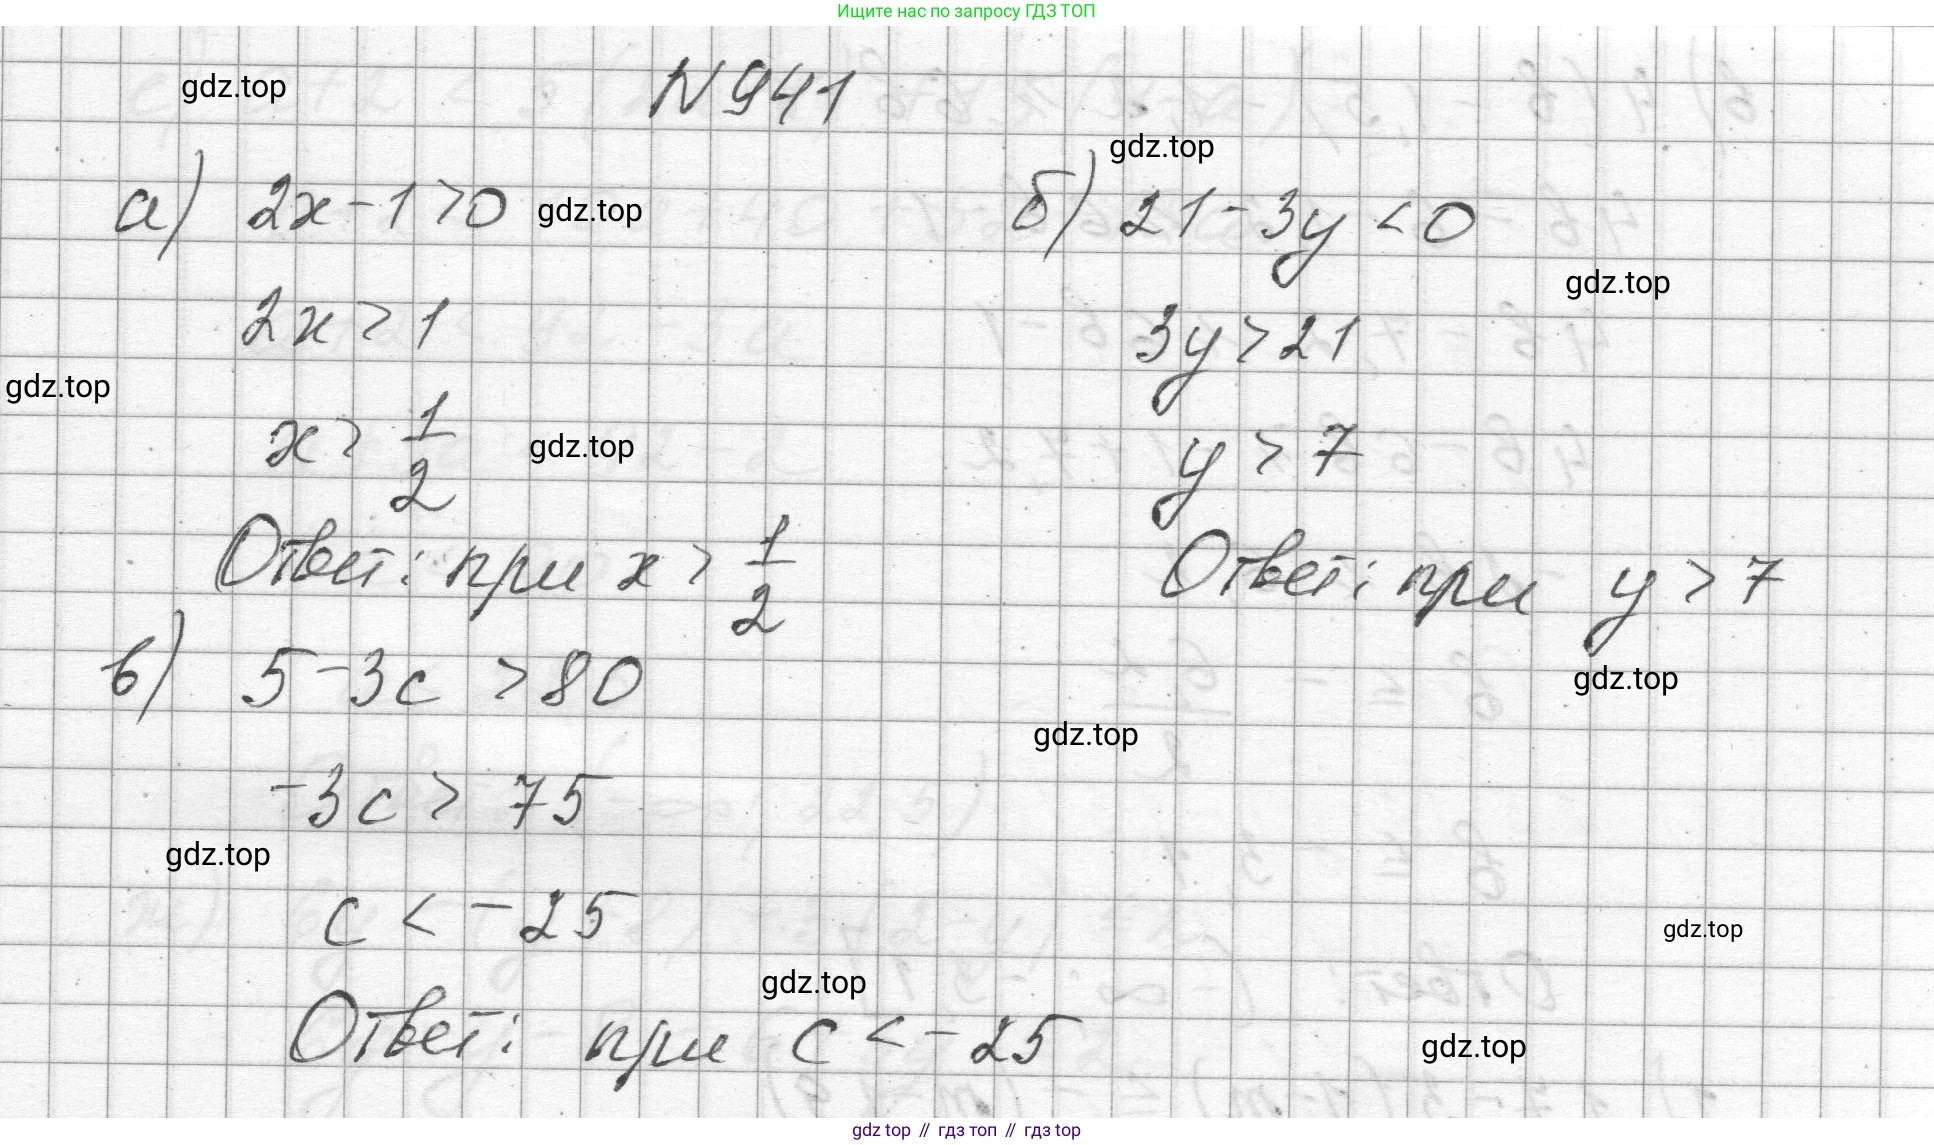 Ищите нас по запросу ГДЗ ТОП
N 941
gdz.top
gdz.top
а) 2x - 1 > 0
gdz.top
2x > 1
gdz.top
x > 1/2
gdz.top
Ответ: при x > 1/2
б) 21 - 3y < 0
gdz.top
3y > 21
y > 7
Ответ: при y > 7
gdz.top
в) 5 - 3c > 80
gdz.top
-3c > 75
gdz.top
c < -25
gdz.top
gdz.top
Ответ: при c < -25
gdz.top
gdz top // гдз топ // gdz top